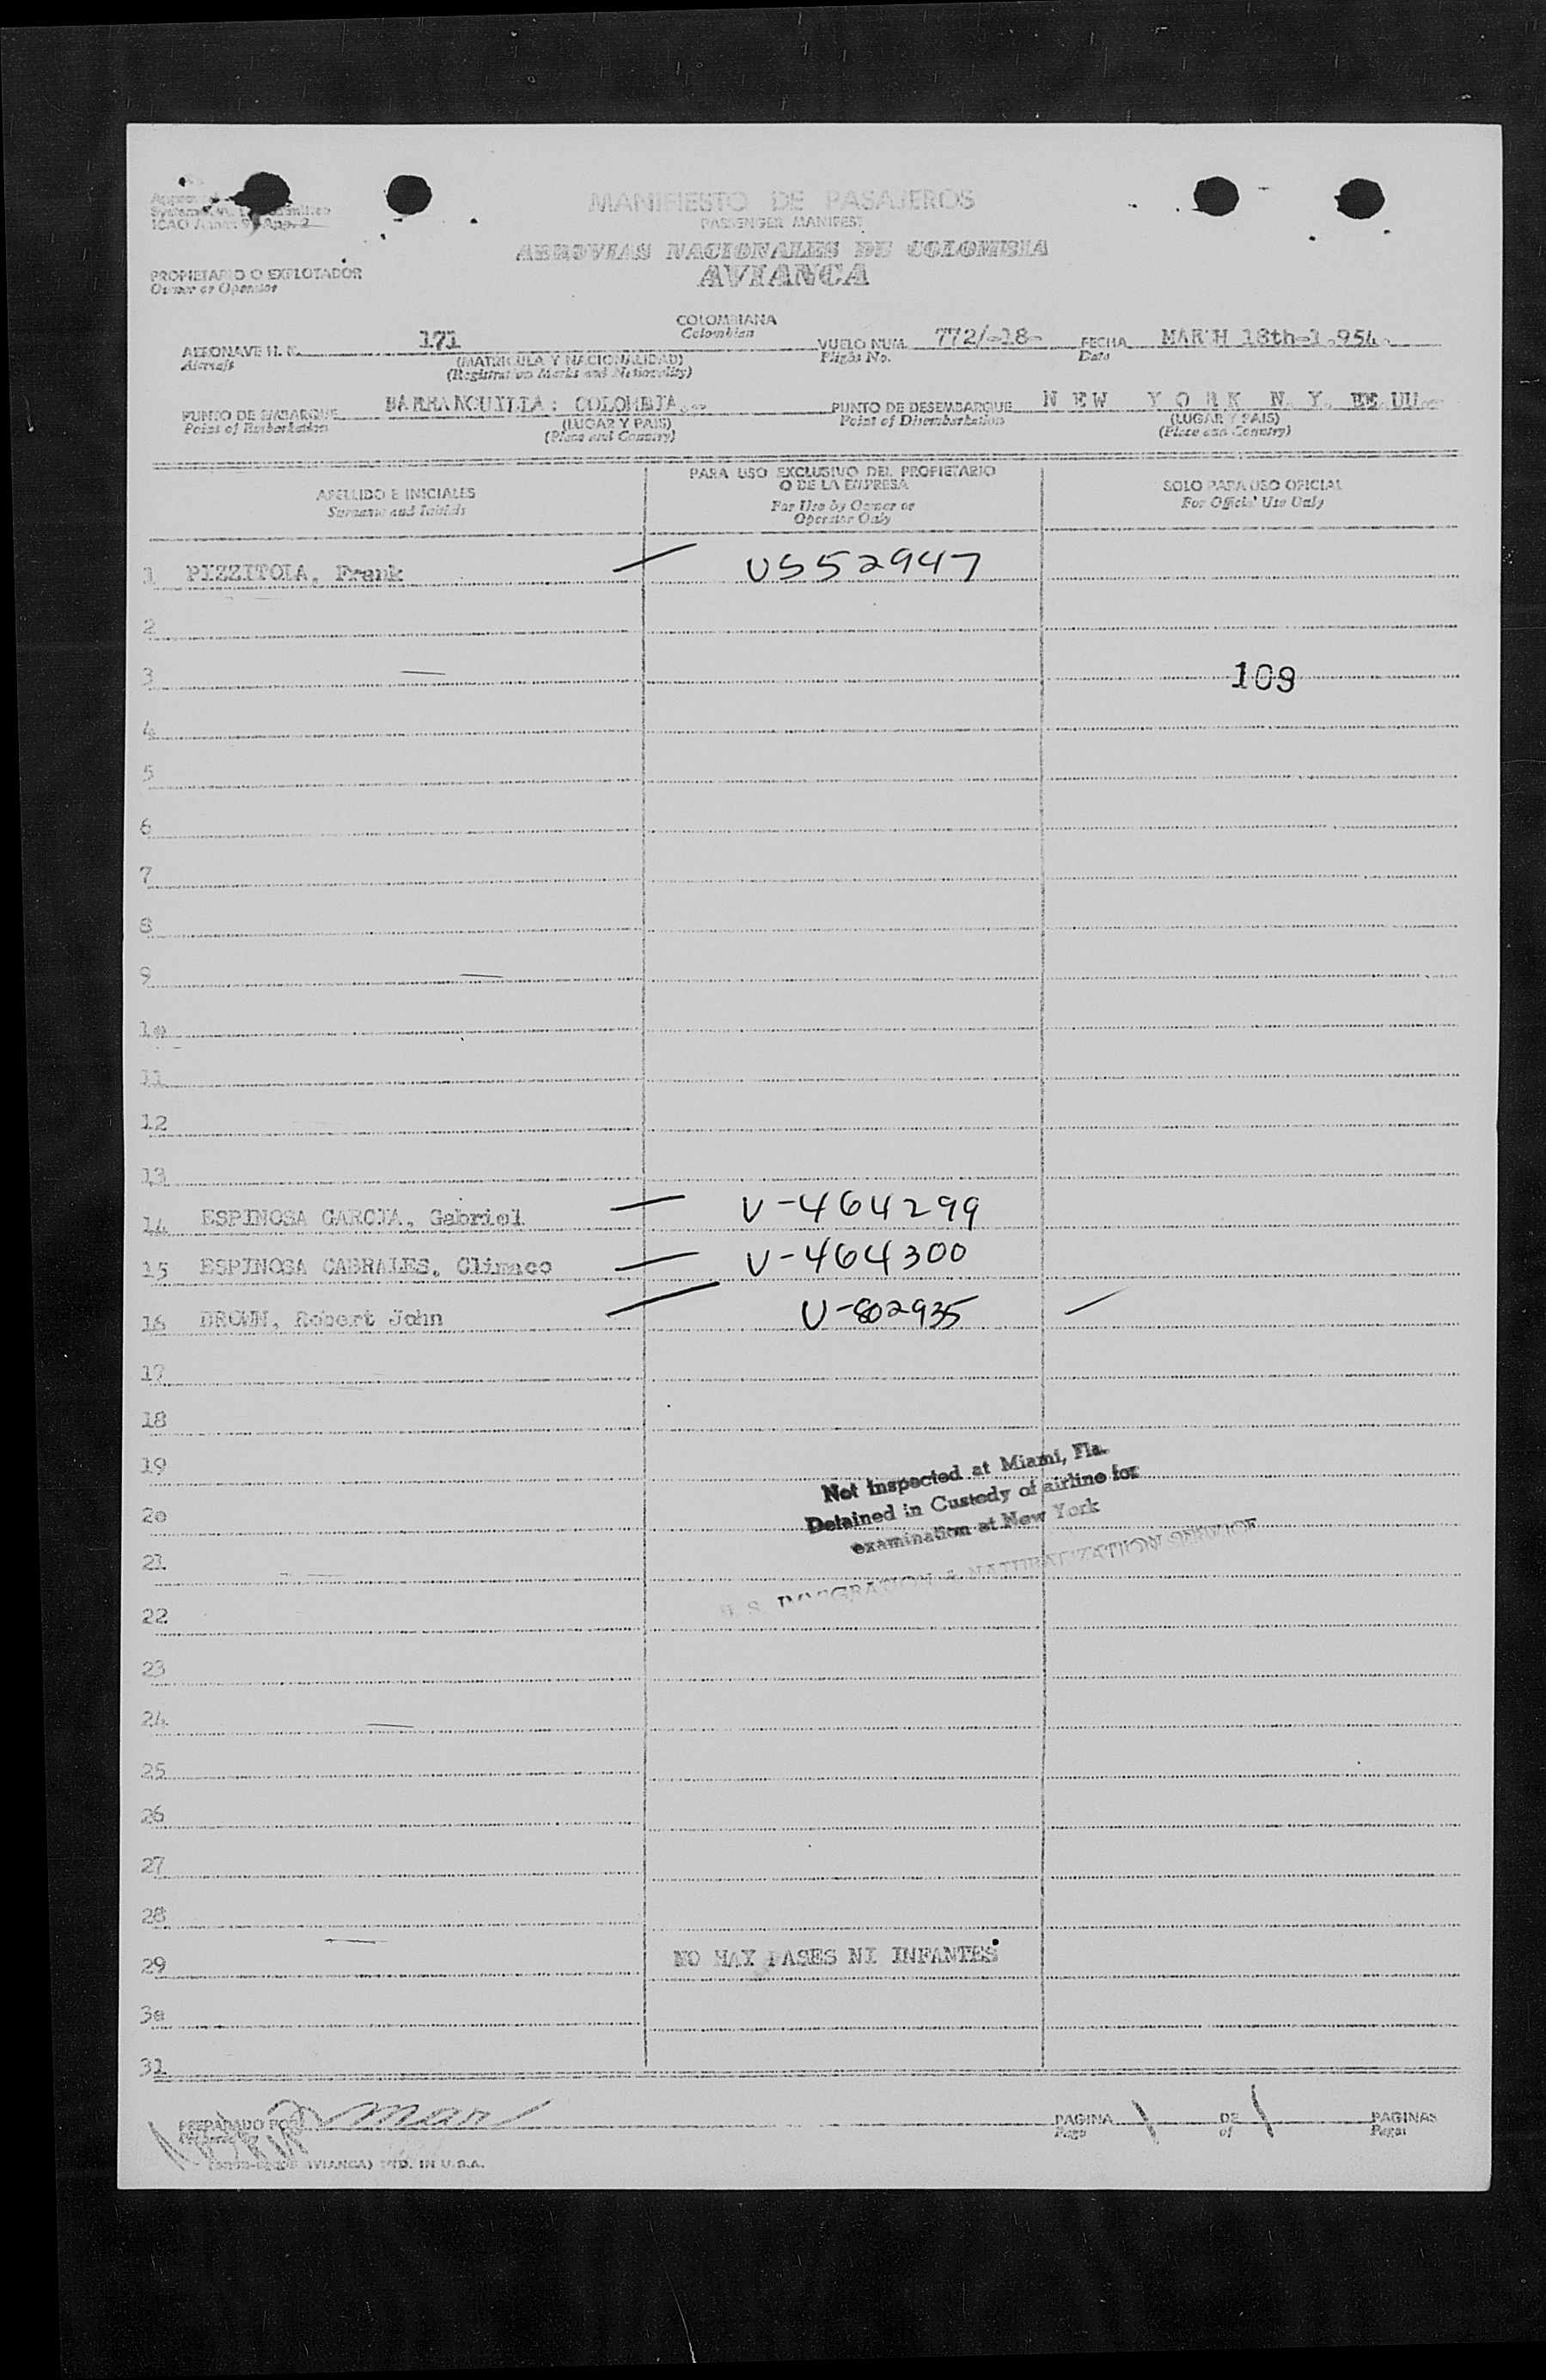 MANIFIESTO DE PASAJEROS
PASSENGER MANIFEST
ICAO Annex 9 App. 2
AEROVIAS NACIONALES DE COLOMBIA
AVIANCA
PROPIETARIO O EXPLOTADOR
Owner or Operator
COLOMBIANA
Colombian
AERONAVE H. K. 171 VUELO NUM. 772/-18- FECHA MARCH 18th-1.954.
Aircraft (MATRICULA Y NACIONALIDAD) Flight No. Date
(Registration Marks and Nationality)
PUNTO DE EMBARQUE BARRANQUILLA: COLOMBIA.-- PUNTO DE DESEMBARQUE NEW YORK N. Y. EE. UU.--
Point of Embarkation (LUGAR Y PAIS) Point of Disembarkation (LUGAR Y PAIS)
(Place and Country) (Place and Country)
APELLIDO E INICIALES
Surname and Initials
PARA USO EXCLUSIVO DEL PROPIETARIO
O DE LA EMPRESA
For Use by Owner or
Operator Only
SOLO PARA USO OFICIAL
For Official Use Only
1 PIZZITOLA, Frank — US52947
2
3 — 109
4
5
6
7
8
9
1o
11
12
13
14 ESPINOSA GARCIA, Gabriel — V-464299
15 ESPINOSA CABRALES, Climaco — V-464300
16 BROWN, Robert John — V-802935
17
18
19
2o
21
22
23
24
25
26
27
28
29 NO HAY PASES NI INFANTES
3o
31
Not Inspected at Miami, Fla.
Detained in Custody of airline for
examination at New York
U. S. IMMIGRATION & NATURALIZATION SERVICE
PREPARADO POR PAGINA 1 DE 1 PAGINAS
Page of Pages
AVIANCA) PTD. IN U.S.A.